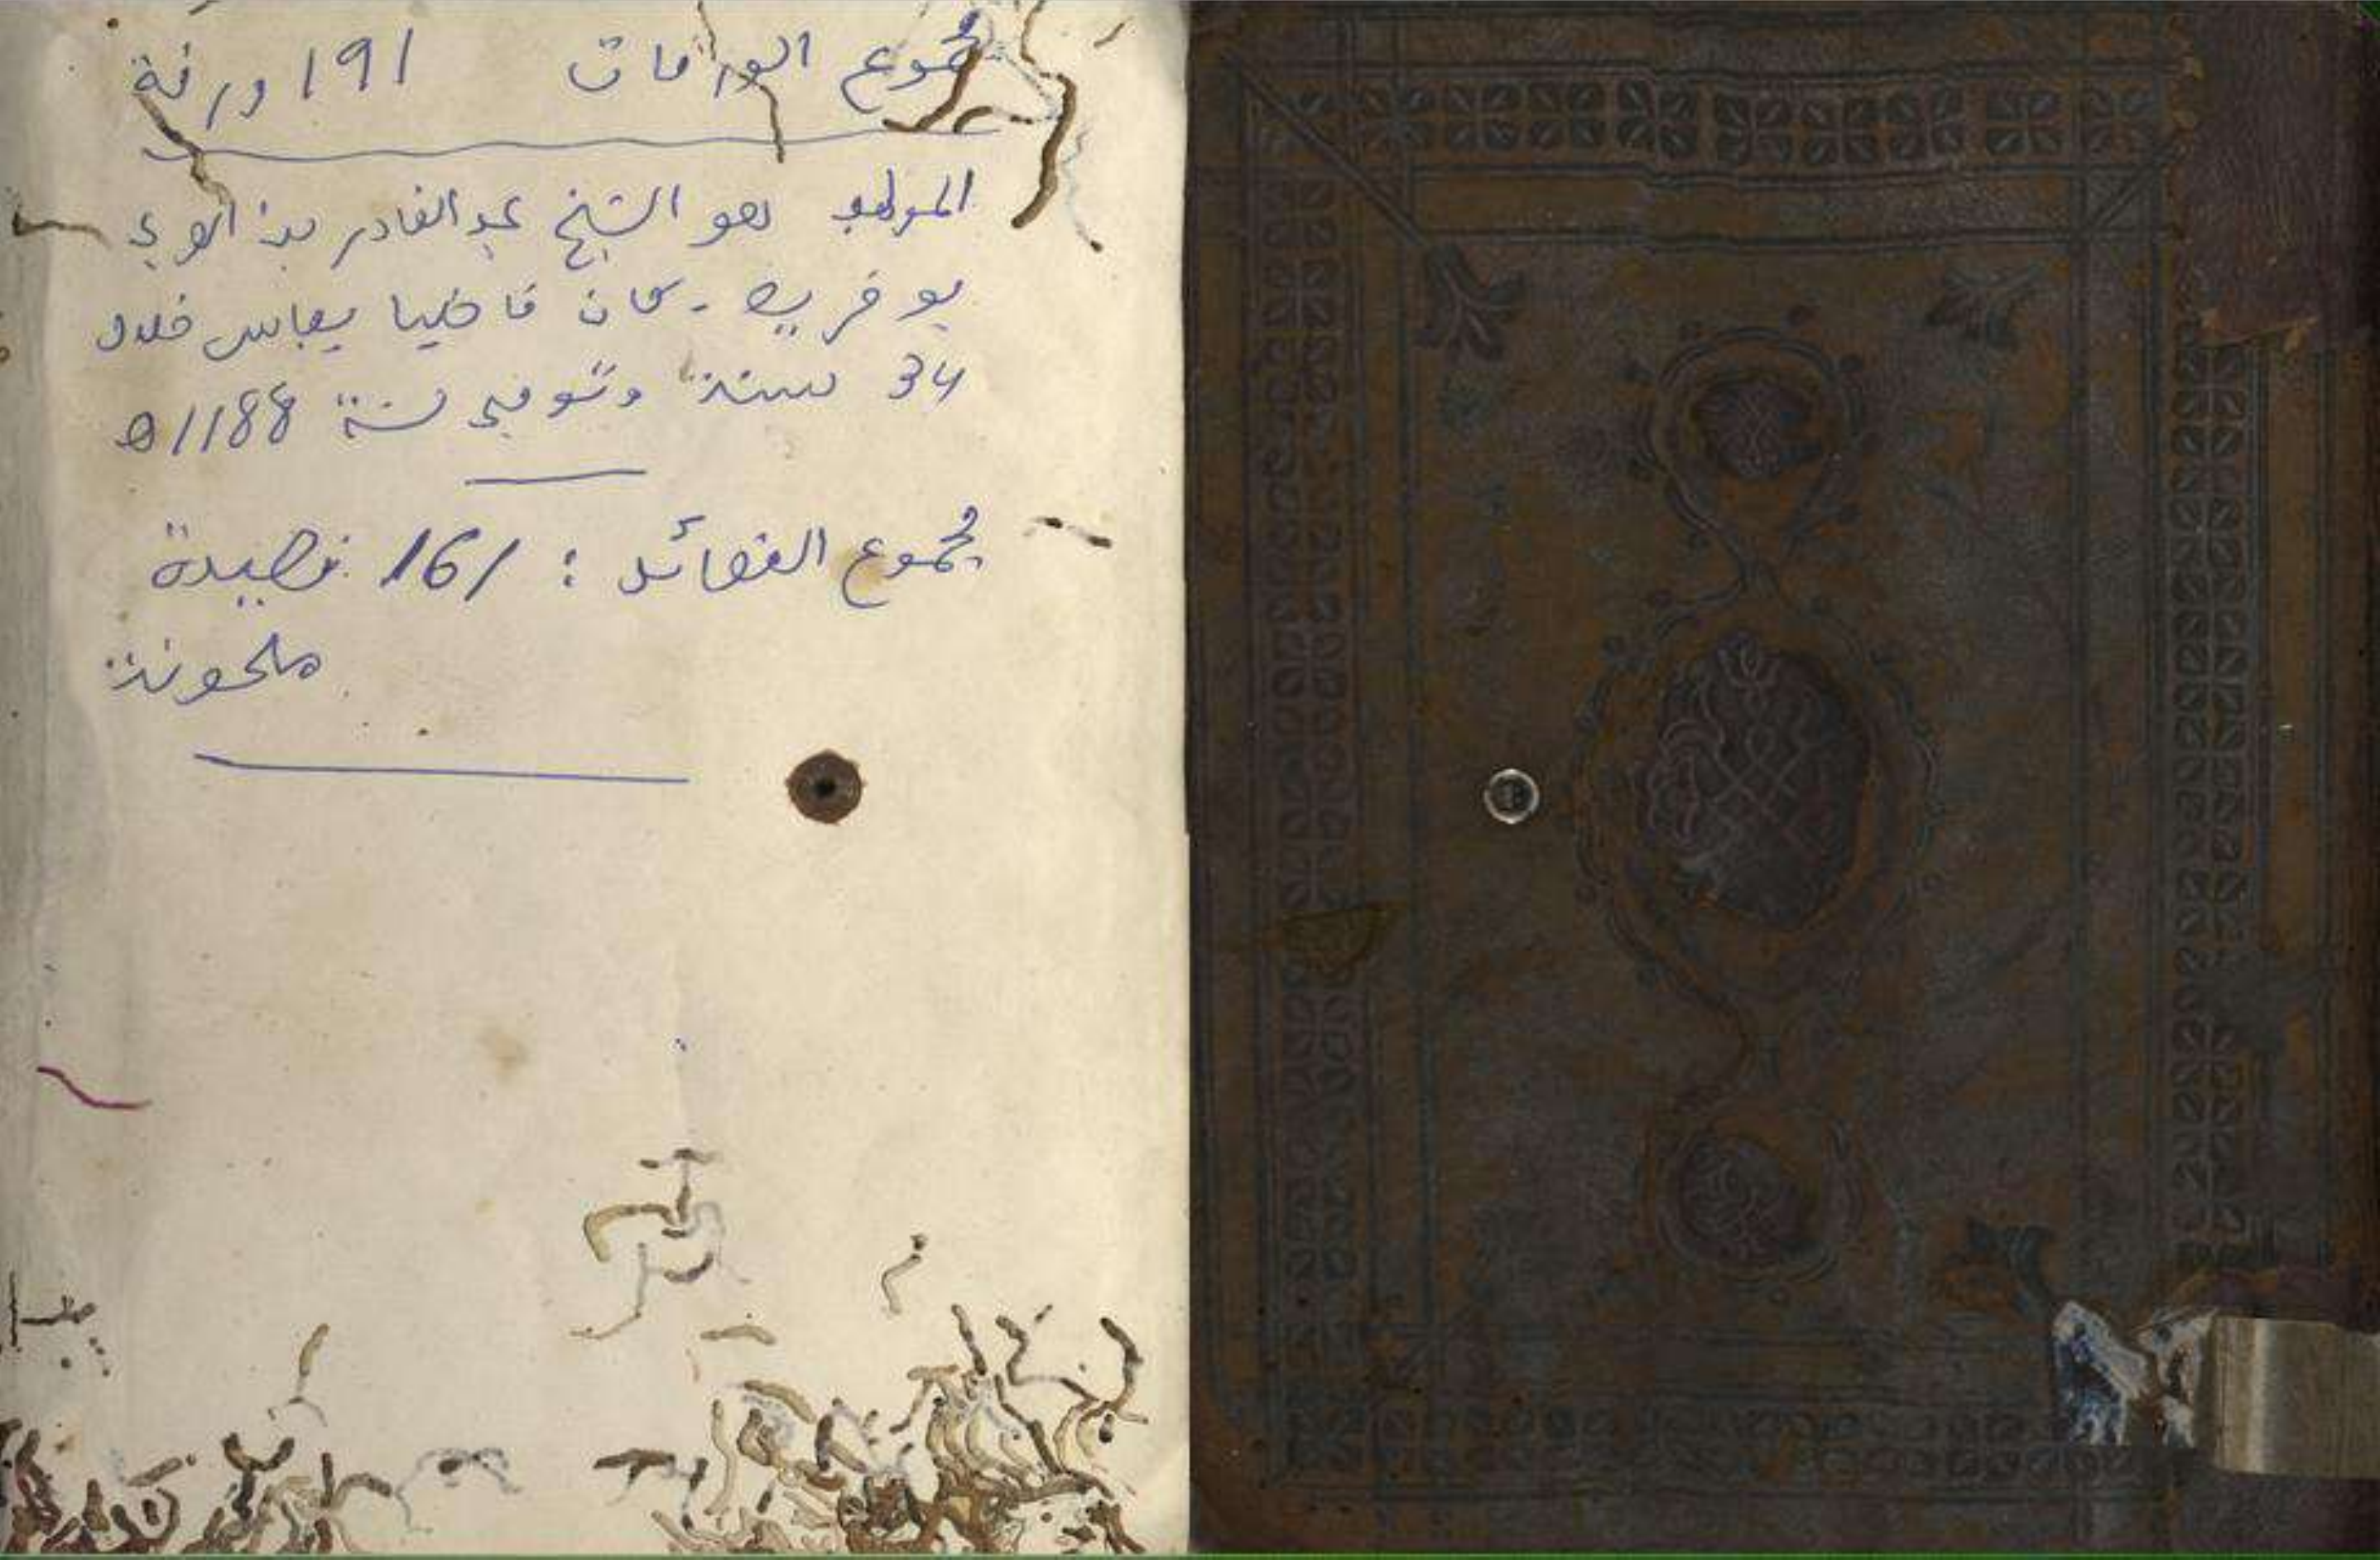 مجموع الورقات 191 ورقة
المؤلف هو الشيخ عبد القادر بن العربي
بوخريص. كان قاضيا بفاس خلال
34 سنة وتوفي سنة 1188ه
مجموع القصائد : 161 قصيدة
ملحونة